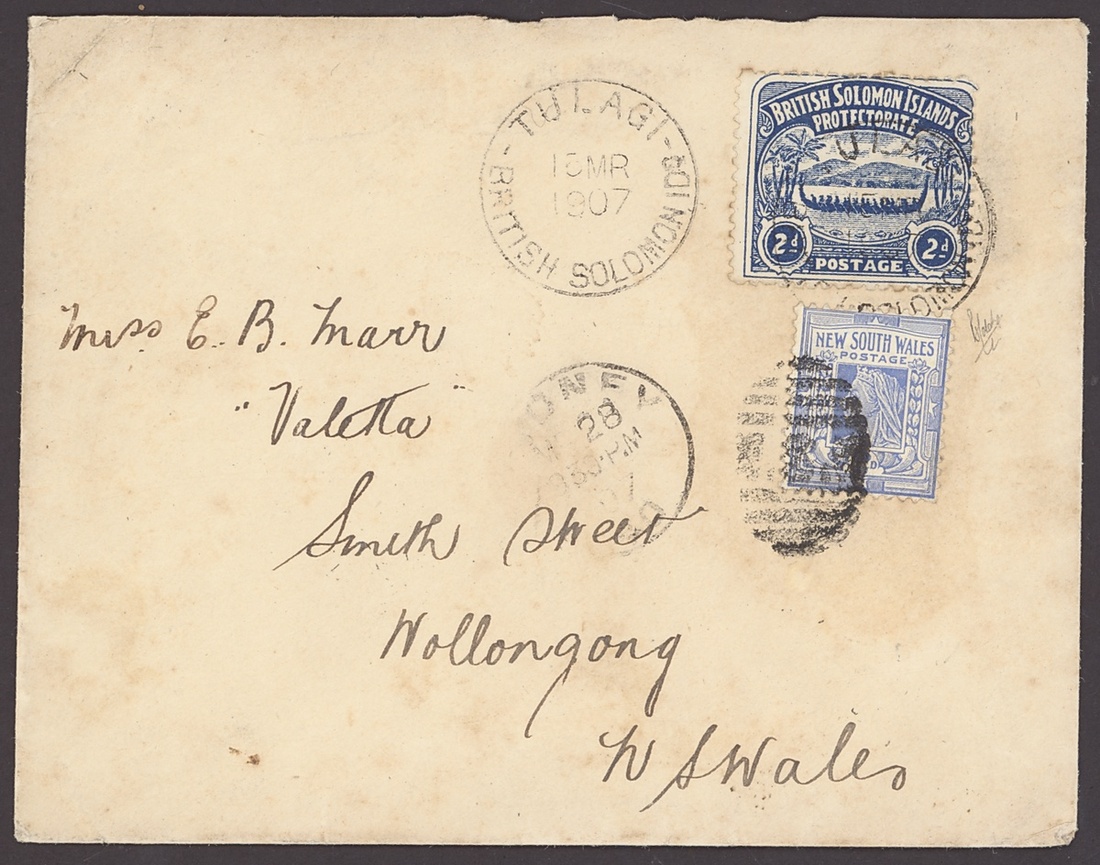 TULAGI
15MR
1907
BRITISH SOLOMON IDS
BRITISH SOLOMON ISLANDS
PROTECTORATE
2d 2d
POSTAGE
NEW SOUTH WALES
POSTAGE
SYDNEY
28
P.M
07
Miss E. B. Marr
"Valetta"
Smith Street
Wollongong
N S Wales